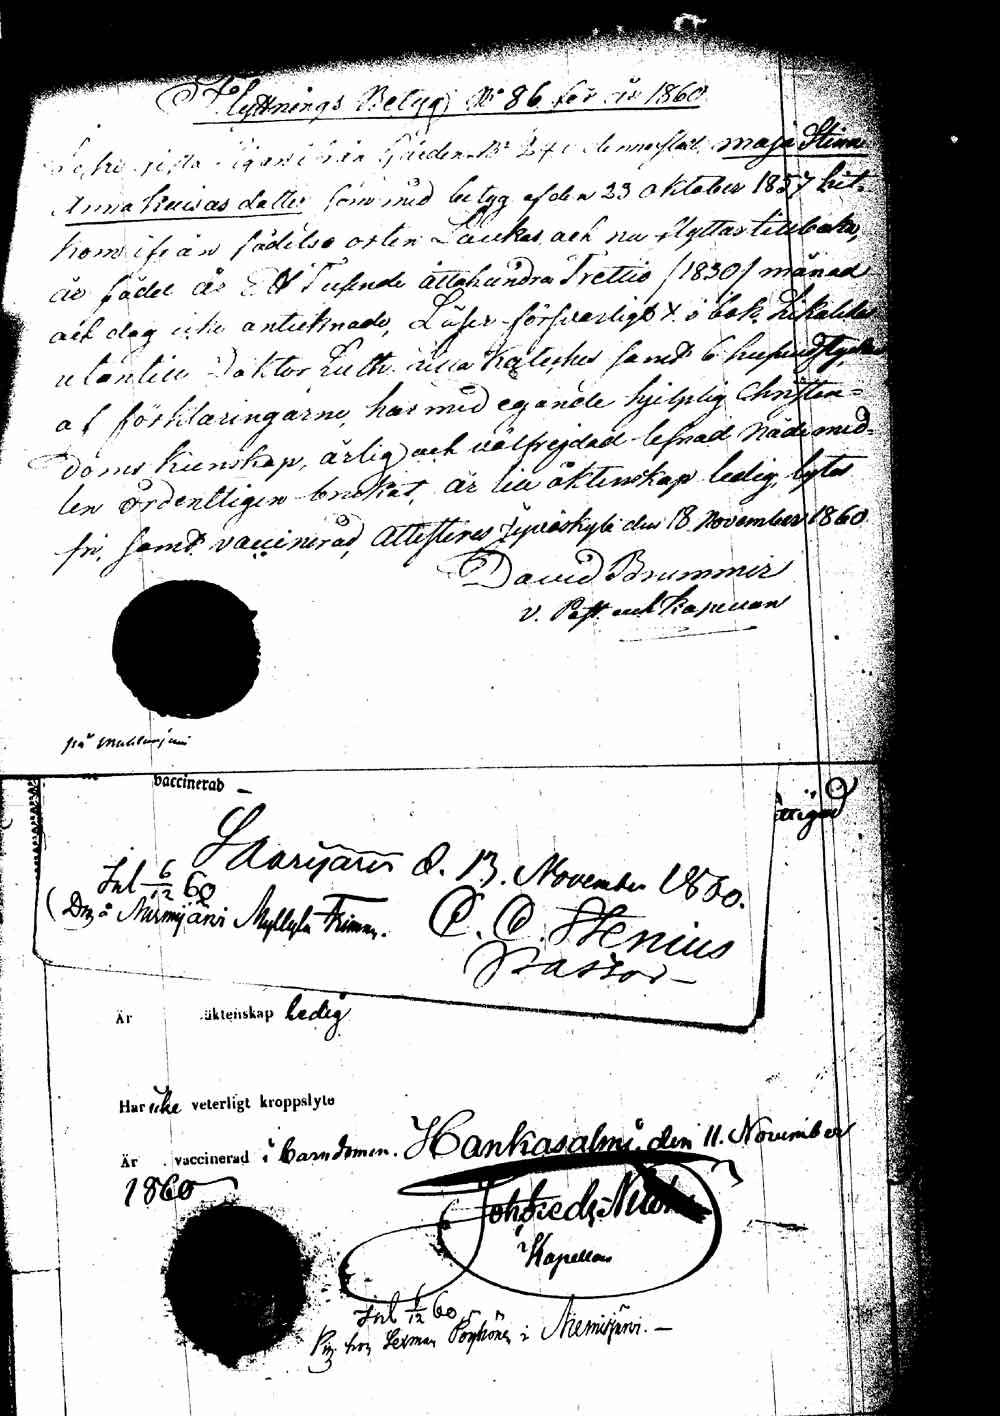 Flyttnings Betyg No 86 för år 1860
gården No 24 Maja Stina
Anna Kaisas dotter som med betyg af den 23 Oktober 1857 hit-
kom ifrån födelse orten Laukas, och nu flyttar tillbaka,
är född år Ett Tusende åttahundra Trettio /1830/ månad
och dag icke antecknade, Läser försvarligt i bok,
utantill Doktor Luth. lilla Kateches samt 6 hufvudstycken
af förklaringarne, har med egande hjelplig Christen-
doms kunskap, ärlig och välfrejdad lefnad Nådemed-
len ordentligen brukat, är till äktenskap ledig, lytes
fri, samt vaccinerad, Attesteras Jyväskylä den 18 November 1860
David Brummer
v. Past. och Kapellan
på
vaccinerad –
Saarijärvi d. 13. November 1860.
Inl 6/12 60
(Drg å Niemijärvi Myllylä
C. C. Stenius
Pastor –
Är äktenskap ledig
Har icke veterligt kroppslyte
Är vaccinerad i barndomen. Hankasalmi, den 11. November
1860
Joh Fredr
Kapellan
Inl 6/12 60
Pig. hos Sexman i Niemisjärvi. –